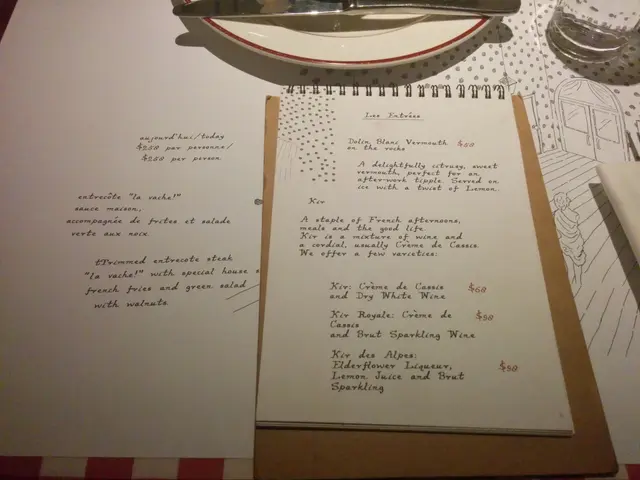 aujourd'hui/today
$250 per personne/
$250 per person
entrecôte "la vache!"
sauce maison,
accompagnée de frites et salade
verte aux noix.
tTrimmed entrecote steak
"la vache!" with special house s
french fries and green salad
with walnuts
Les Entrées
Dolin Blanc Vermouth
on the rocks
A delightfully citrusy, sweet
vermouth, perfect for an
after-work tipple. Served on
ice with a twist of Lemon.
Kir
A staple of French afternoons,
meals and the good life.
Kir is a mixture of wine and
a cordial, usually Crème de Cassis.
We offer a few varieties:
Kir: Crème de Cassis $68
and Dry White Wine
Kir Royale: Crème de $88
Cassis
and Brut Sparkling Wine
Kir des Alpes:
Elderflower Liqueur, $88
Lemon Juice and Brut
Sparkling